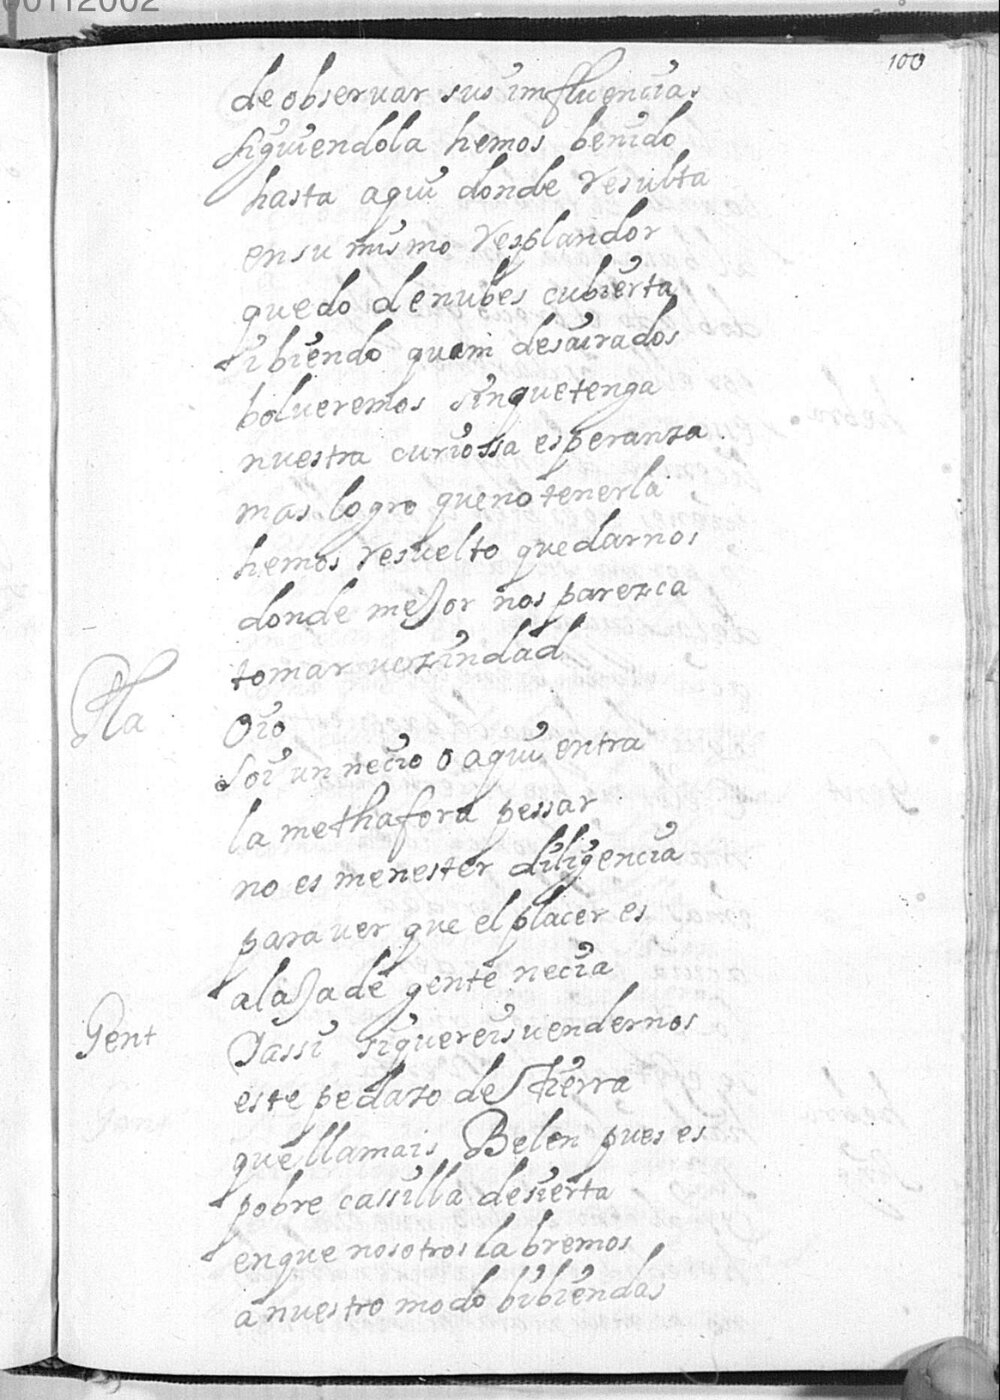 00112002
100
de obseruar sus imfluencias
siguiendola hemos benido
hasta aqui donde resulta
en su mismo resplandor
quedo de nubes cubierta
i biendo quam desairados
bolueremos sin que tenga
nuestra curiossa esperanza
mas logro que no tenerla
hemos resuelto quedarnos
donde mejor nos parezca
tomar vezindad
Pla Oio
Soi un necio o aqui entra
la methafora pessar
no es menester diligencia
para uer que el placer es
alaja de gente necia
Gent I assi si quereis uendernos
este pedazo de tierra
que llamais Belen pues es
pobre cassilla desierta
en que nosotros labremos
a nuestro modo bibiendas